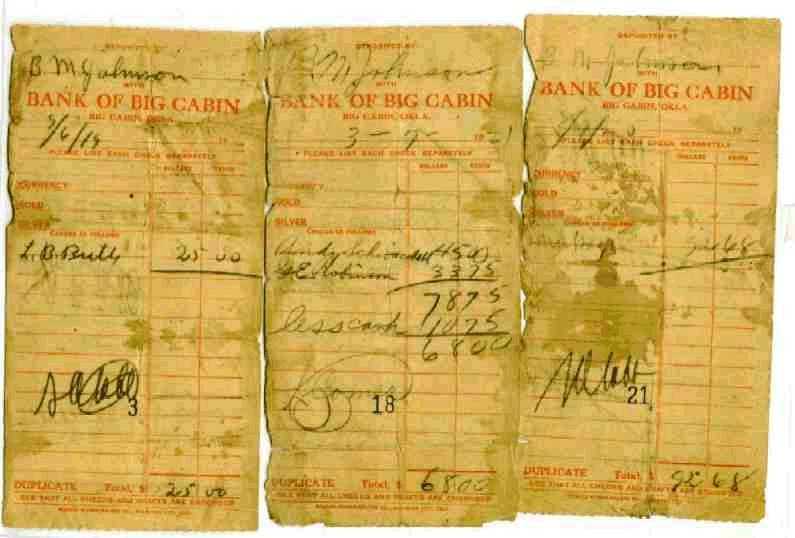 DEPOSITED BY
B M Johnson
WITH
BANK OF BIG CABIN
BIG CABIN, OKLA.
PLEASE LIST EACH CHECK SEPARATELY
DOLLARS CENTS
CURRENCY
GOLD
SILVER
CHECKS AS FOLLOWS
L.B. Butts 25 00
3
DUPLICATE Total, $ 25 00
SEE THAT ALL CHECKS AND DRAFTS ARE ENDORSED
DEPOSITED BY
B M Johnson
WITH
BANK OF BIG CABIN
BIG CABIN, OKLA.
PLEASE LIST EACH CHECK SEPARATELY
DOLLARS CENTS
CURRENCY
GOLD
SILVER
CHECKS AS FOLLOWS
4500
Robinson 3375
7875
less cash 1075
6800
18
DUPLICATE Total, $ 6800
SEE THAT ALL CHECKS AND DRAFTS ARE ENDORSED
DEPOSITED BY
B M Johnson
WITH
BANK OF BIG CABIN
BIG CABIN, OKLA.
PLEASE LIST EACH CHECK SEPARATELY
DOLLARS CENTS
CURRENCY
GOLD
SILVER
CHECKS AS FOLLOWS
68
21
DUPLICATE Total, $ 92 68
SEE THAT ALL CHECKS AND DRAFTS ARE ENDORSED